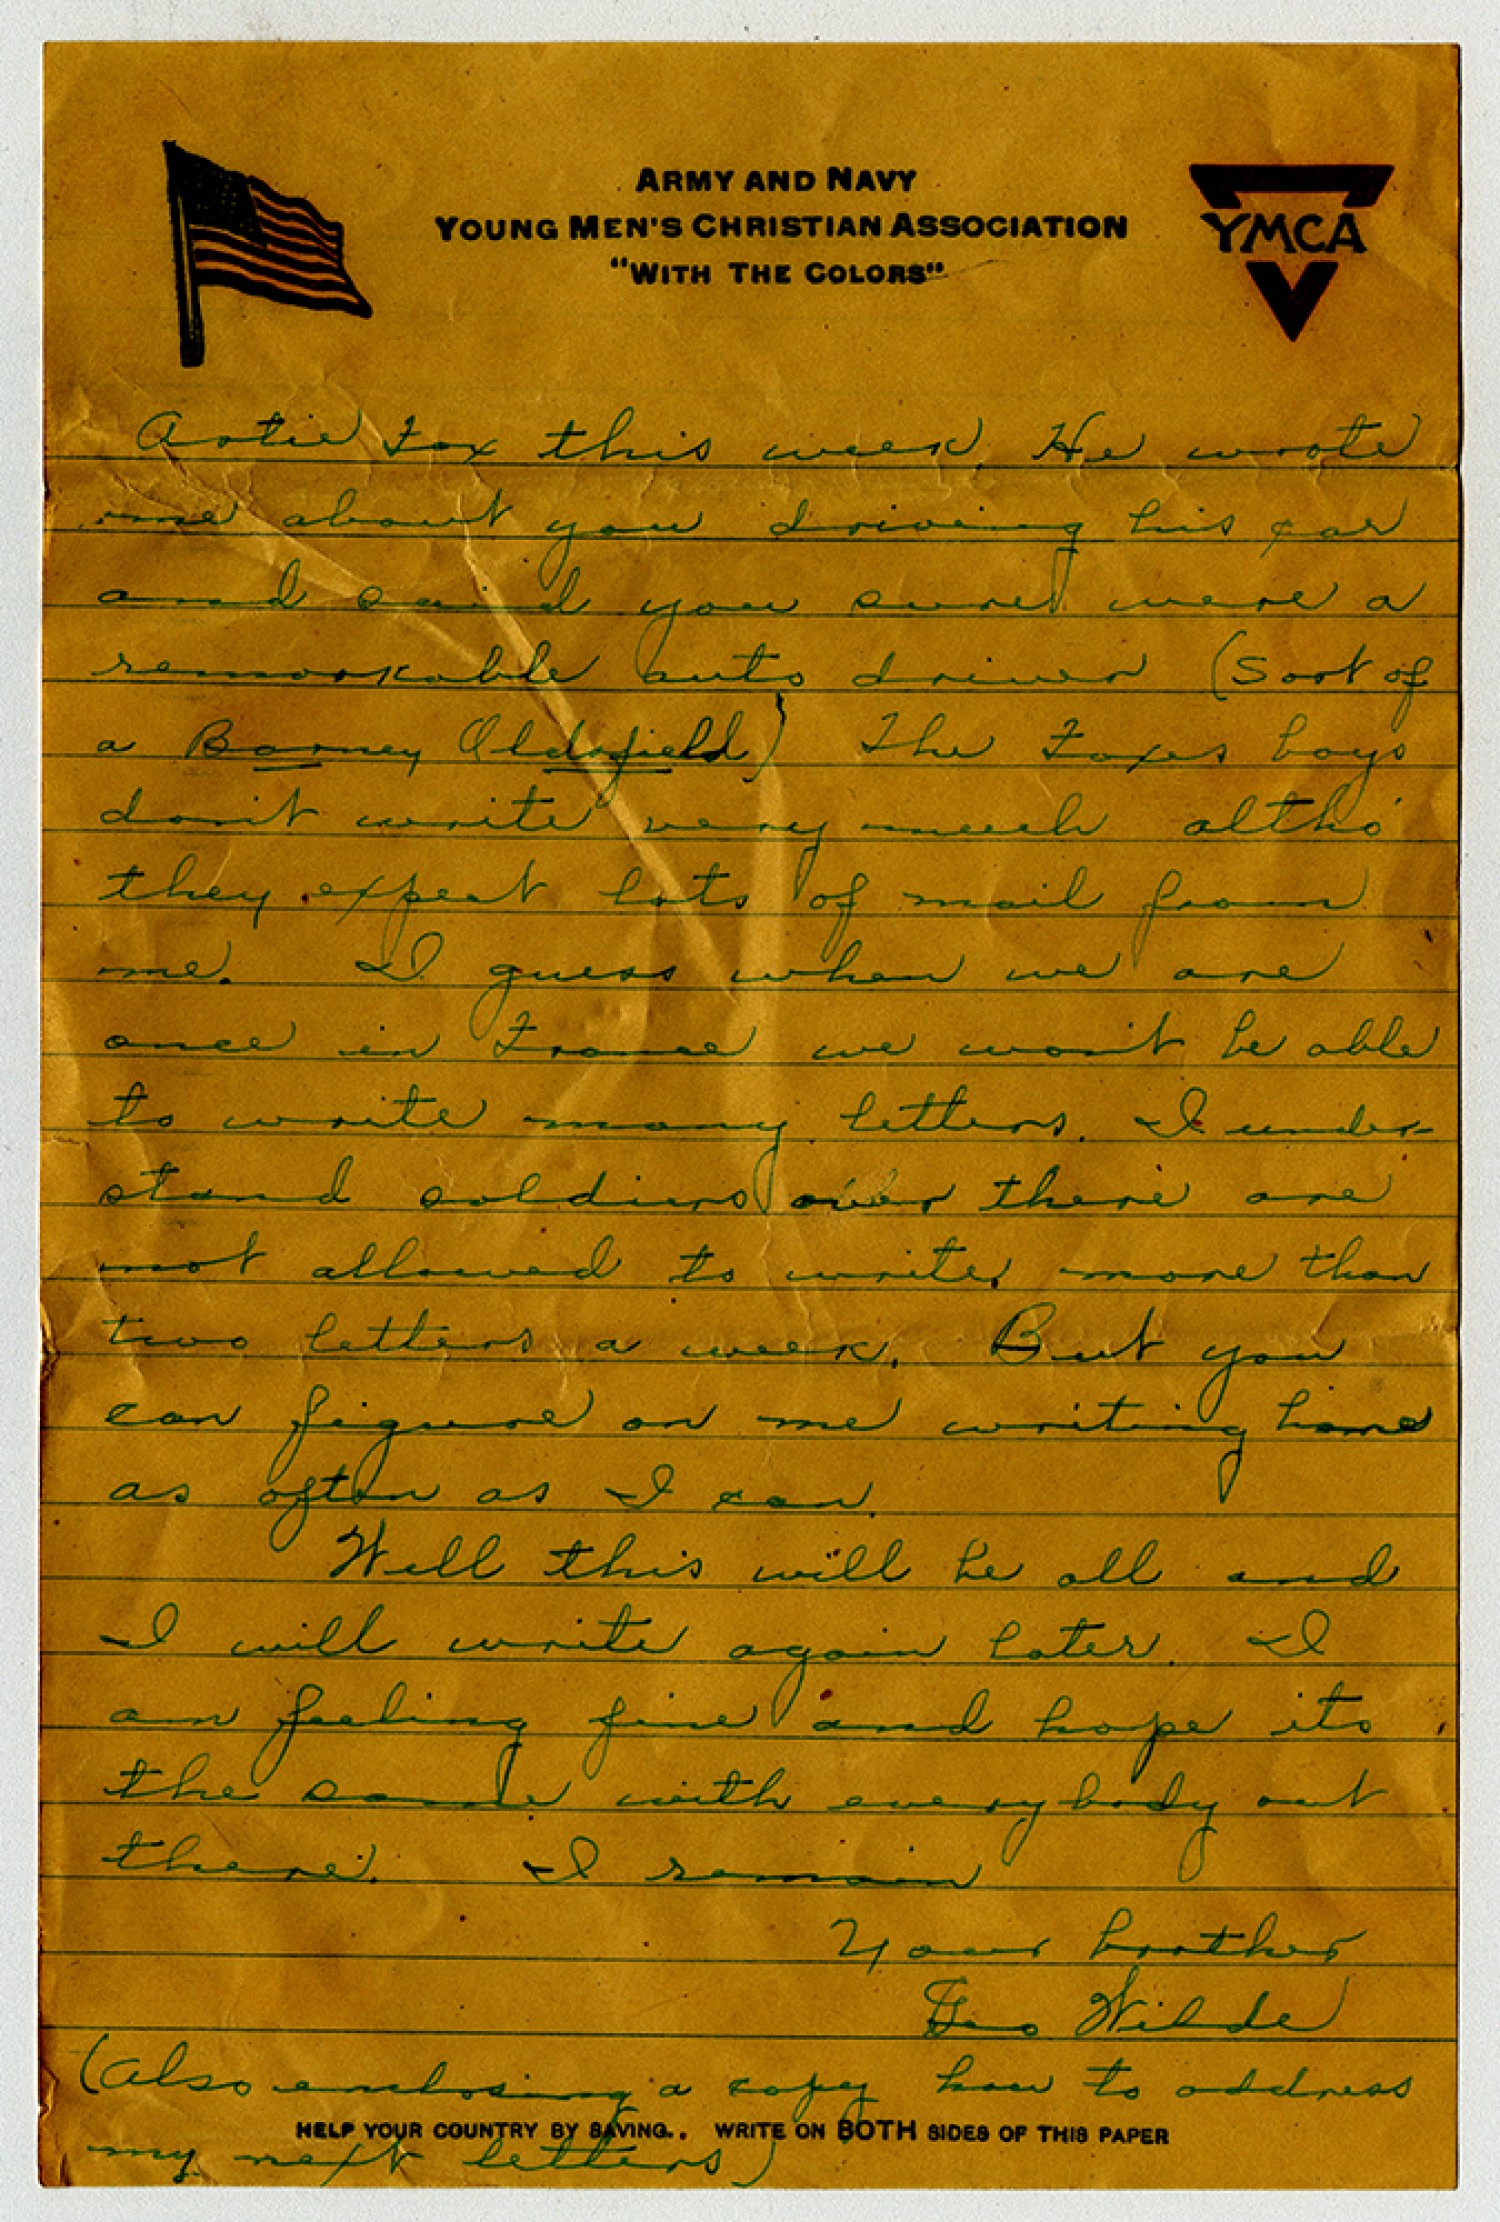 ARMY AND NAVY
YOUNG MEN'S CHRISTIAN ASSOCIATION
"WITH THE COLORS"
YMCA
Artie Fox this week. He wrote
me about you driving his car
and said you sure were a
remarkable auto driver (Sort of
a Barney Oldsfield) The Foxes boys
don't write very much altho'
they expect lots of mail from
me. I guess when we are
once in France we won't be able
to write many letters. I under-
stand soldiers over there are
not allowed to write more than
two letters a week. But you
can figure on me writing home
as often as I can.
Well this will be all and
I will write again later. I
am feeling fine and hope its
the same with everybody out
there. I remain
Your brother
Geo Wilde
(Also enclosing a copy how to address
HELP YOUR COUNTRY BY SAVING.. WRITE ON BOTH SIDES OF THIS PAPER
my next letters)